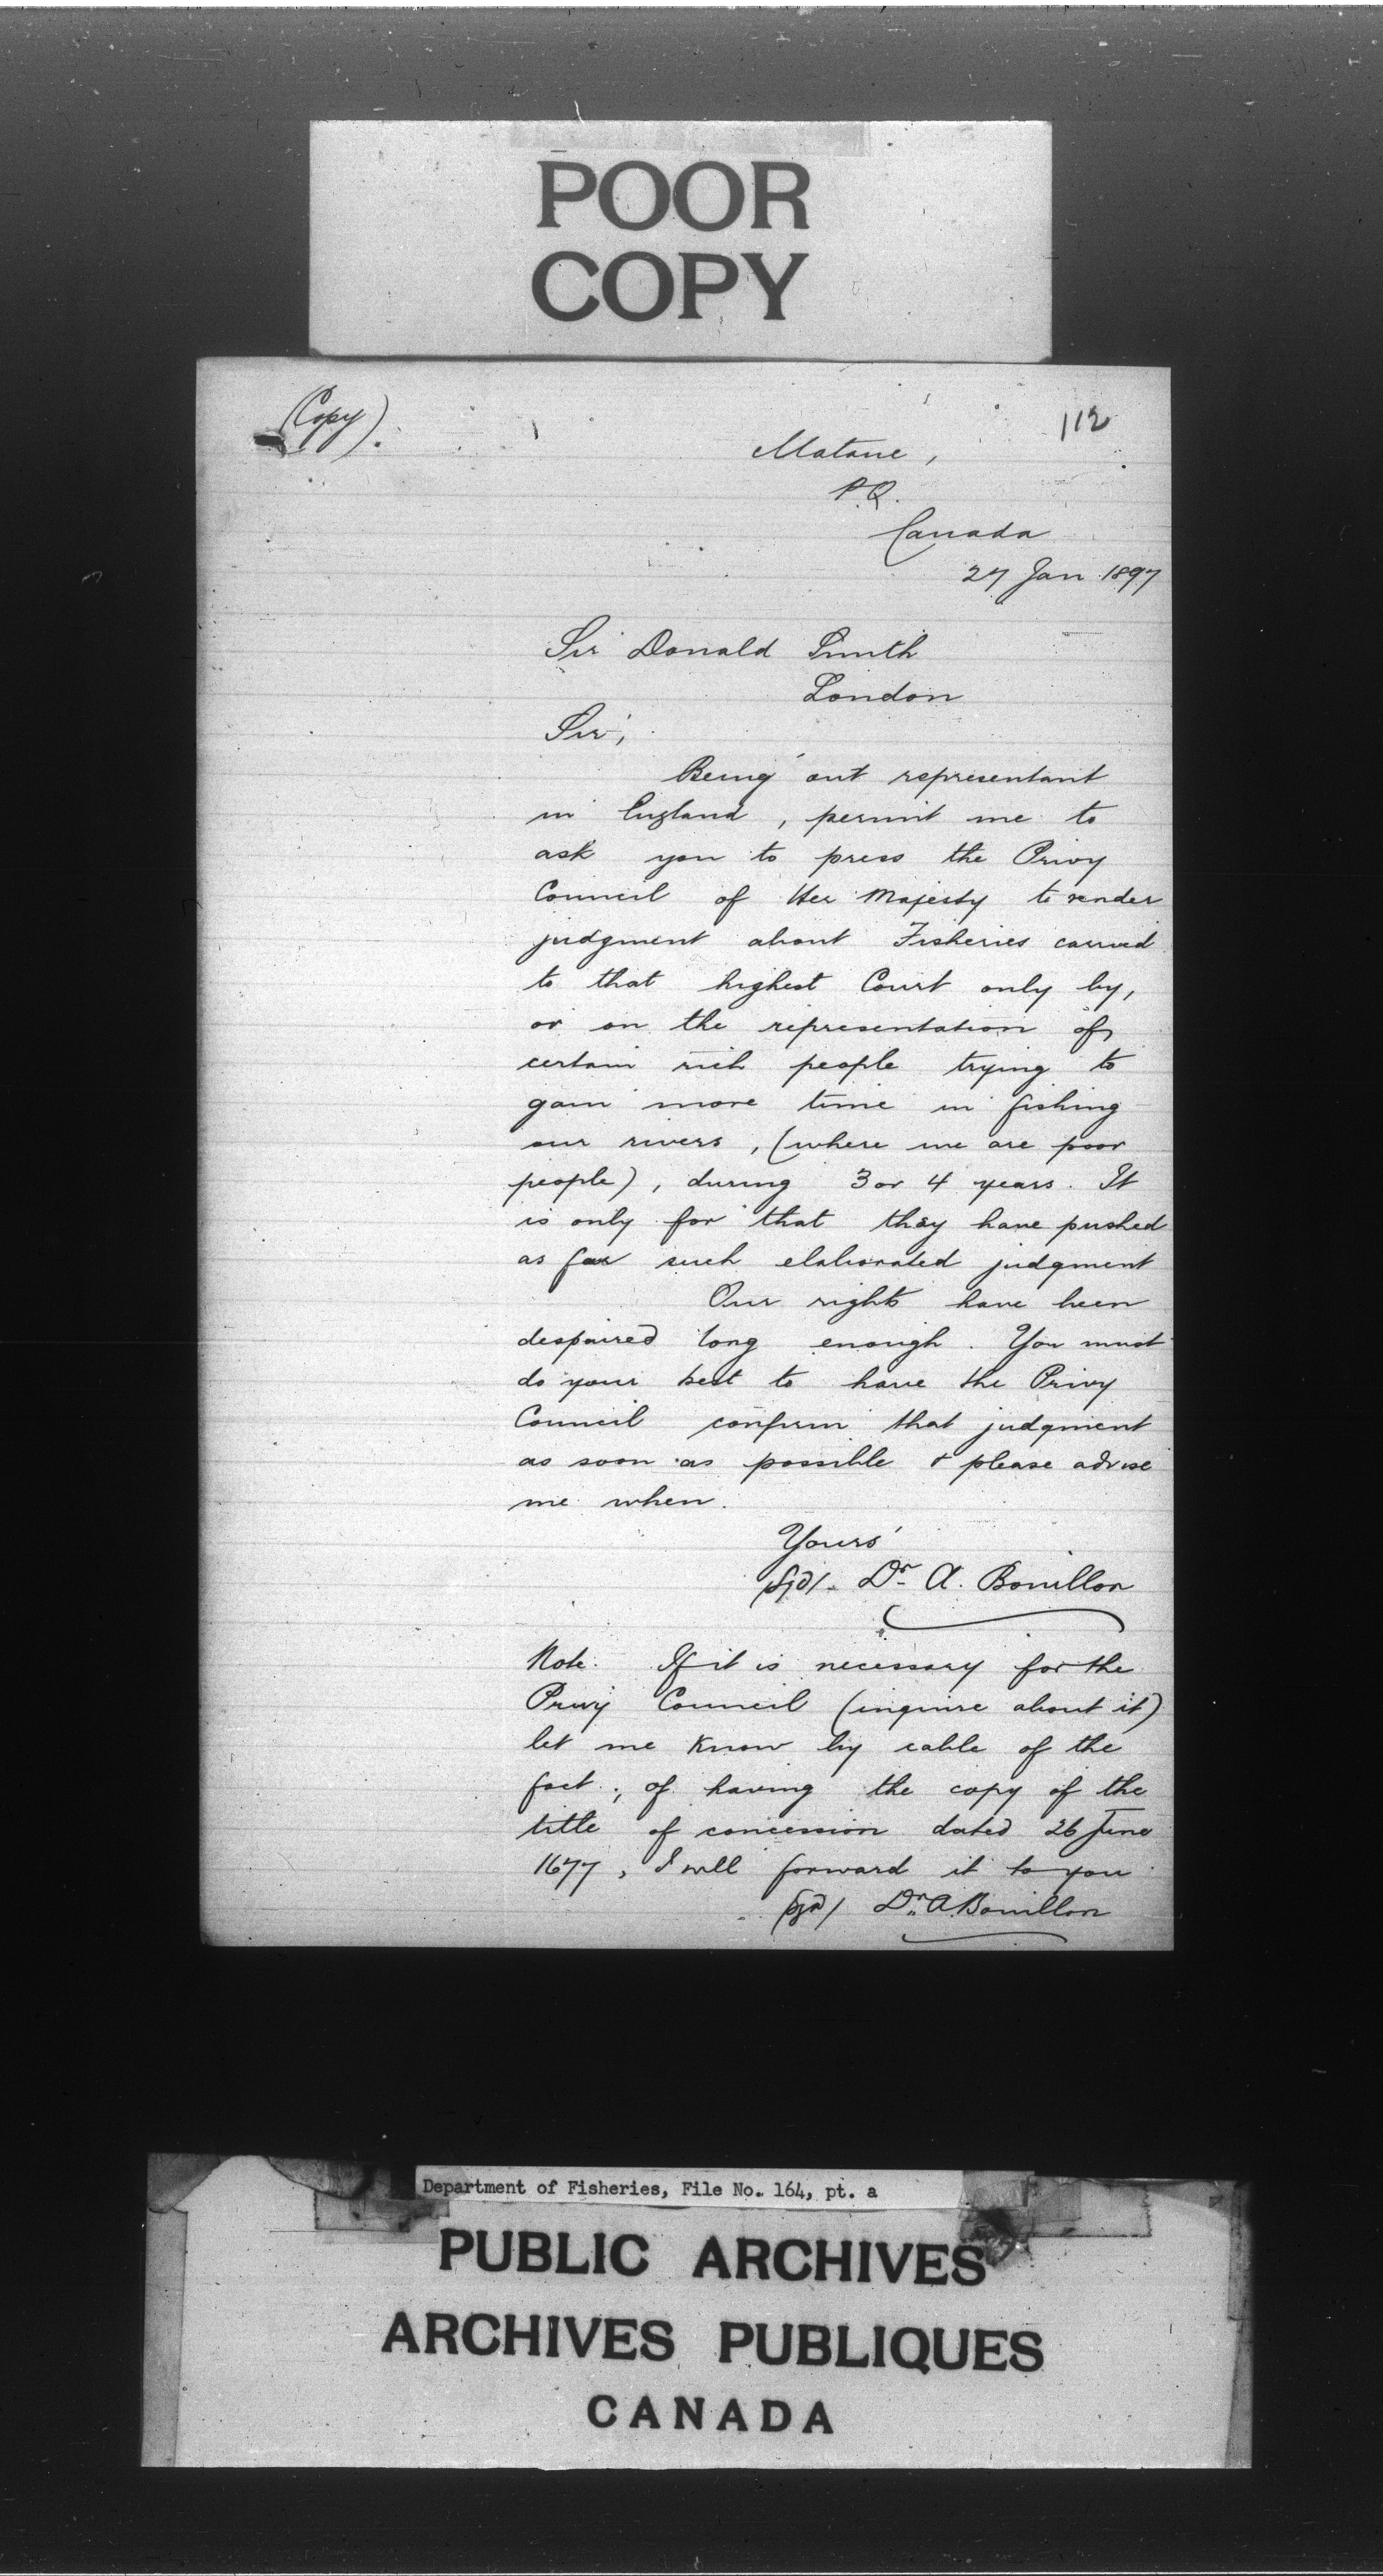 POOR
COPY
(Copy).
112
Matane,
P.Q.
Canada
27 Jan 1897
Sir Donald Smith
London
Sir,
Being out representant
in England, permit me to
ask you to press the Privy
Council of Her Majesty to render
judgment about Fisheries carried
to that highest Court only by,
or on the representation of
certain rich people trying to
gain more time in fishing
our rivers, (where we are poor
people), during 3 or 4 years. It
is only for that they have pushed
as far such elaborated judgment
Our rights have been
despaired long enough. You must
do your best to have the Privy
Council confirm that judgment
as soon as possible & please advise
me when.
Yours
(Sgd/. Dr. A. Bouillon
Note. If it is necessary for the
Privy Council (inquire about it)
let me know by cable of the
fact; of having the copy of the
title of concession dated 26 June
1677, I will forward it to you
(Sgd/ Dr. A. Bouillon
Department of Fisheries, File No. 164, pt. a
PUBLIC ARCHIVES
ARCHIVES PUBLIQUES
CANADA